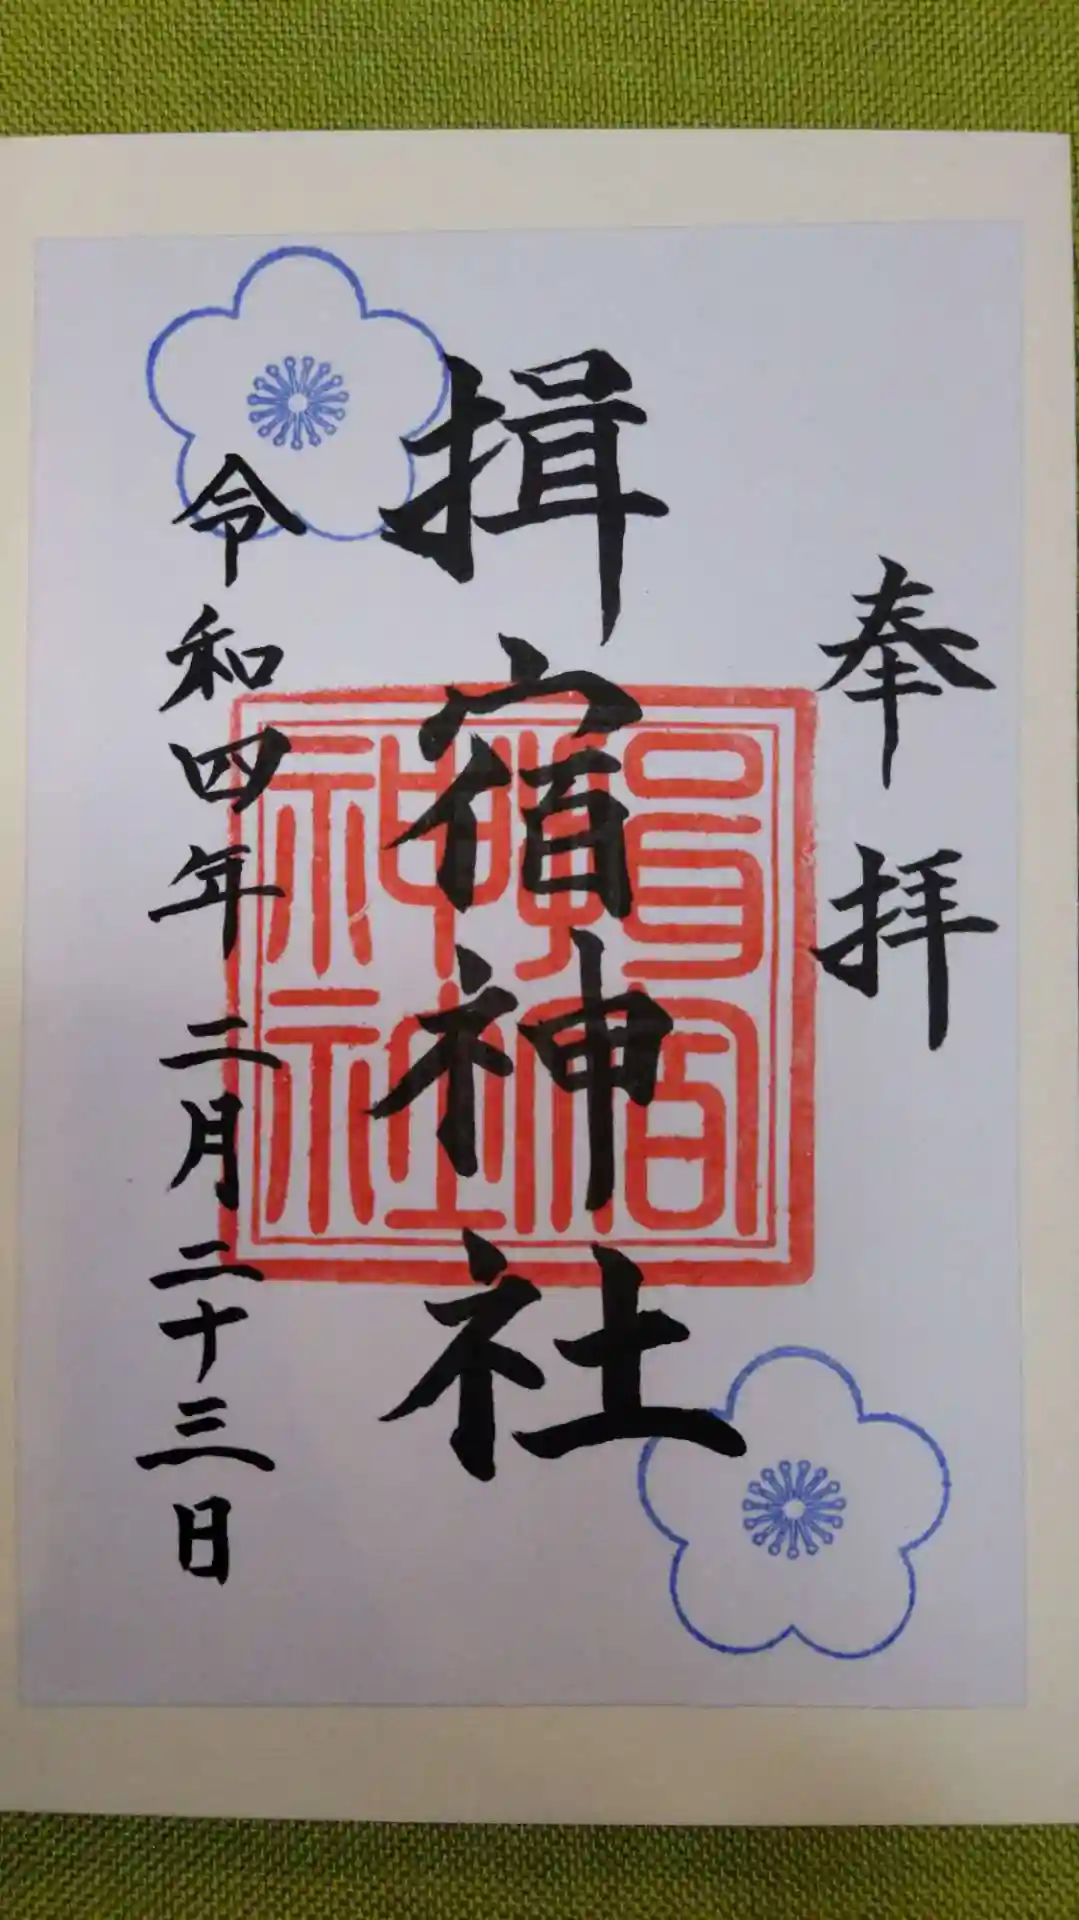 奉拝
揖宿神社
揖宿神社
令和四年二月二十三日